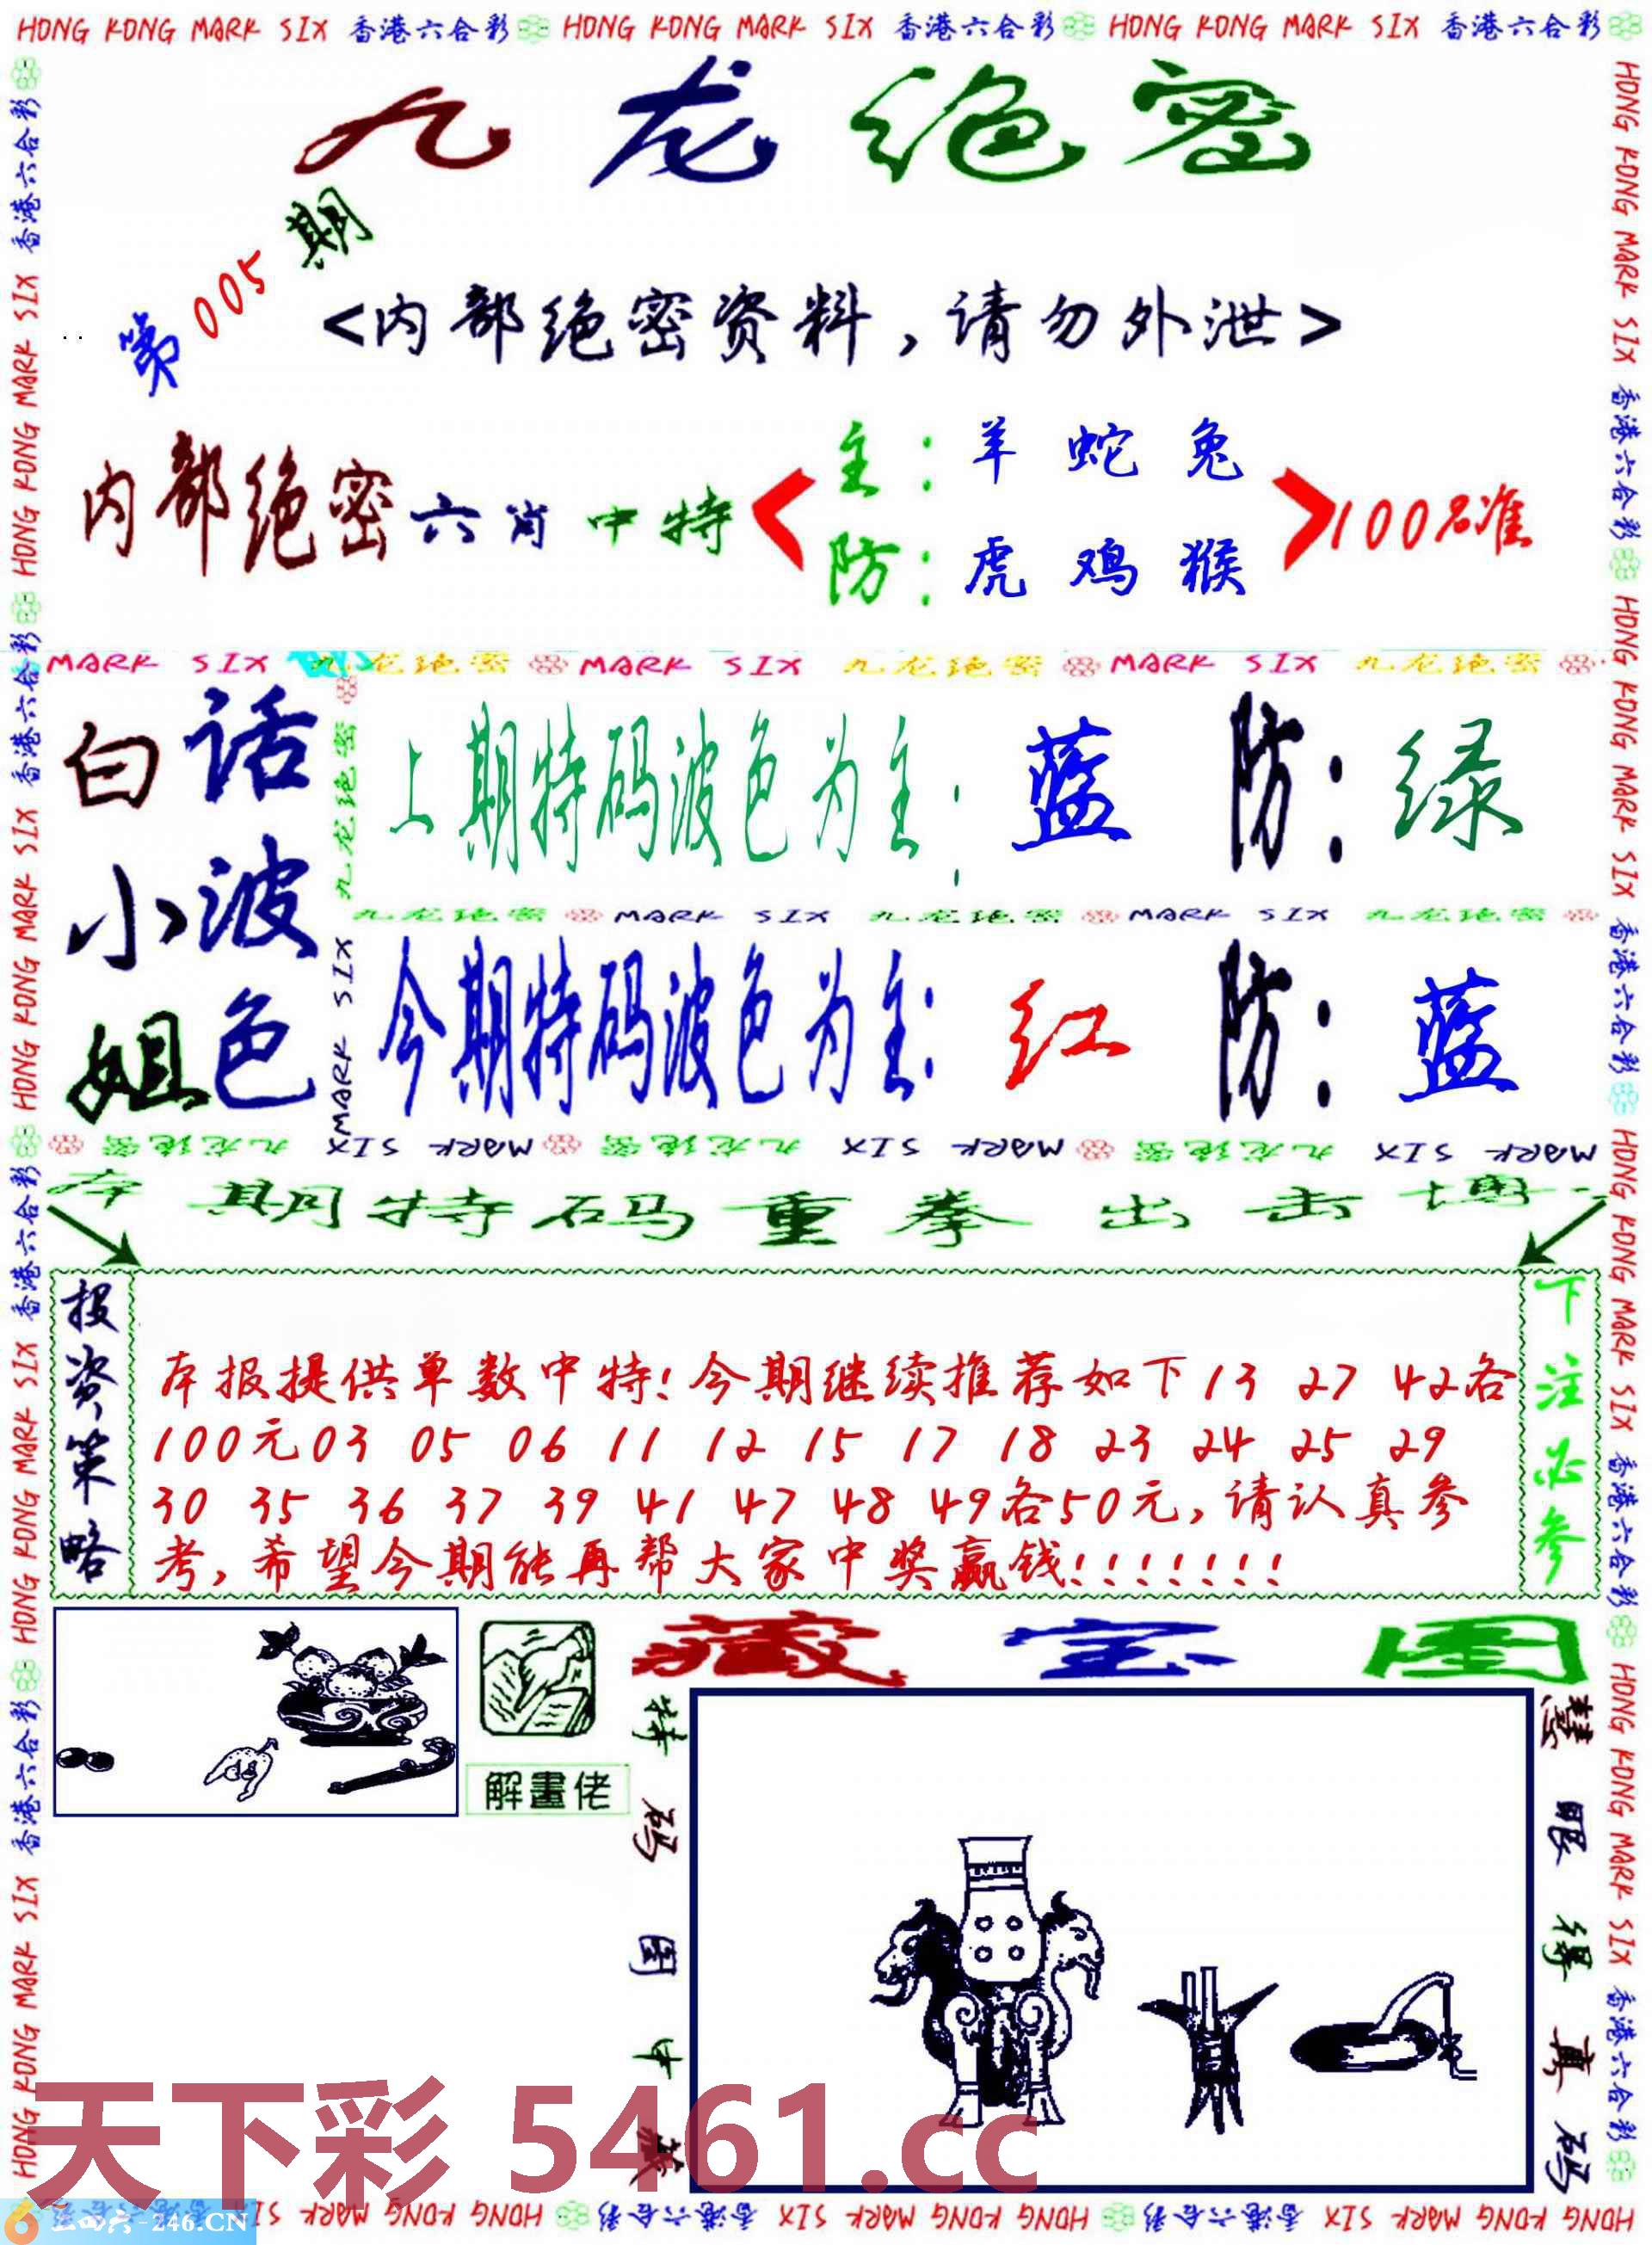 HONG KONG MARK SIX 香港六合彩 HONG KONG MARK SIX 香港六合彩 HONG KONG MARK SIX 香港六合彩
九龙绝密
第005期
<内部绝密资料,请勿外泄>
内部绝密六肖中特
主:羊 蛇 兔
防:虎 鸡 猴
100%准
MARK SIX 九龙绝密 MARK SIX 九龙绝密 MARK SIX 九龙绝密
白话小波姐色
上期特码波色为主:蓝 防:绿
九龙绝密 MARK SIX 九龙绝密 MARK SIX 九龙绝密
今期特码波色为主:红 防:蓝
九龙绝密 MARK SIX
九龙绝密 XIS MARK 九龙绝密 XIS MARK 九龙绝密 XIS MARK
本期特码重拳出击博
投资策略
本报提供单数中特!今期继续推荐如下13 27 42各
100元03 05 06 11 12 15 17 18 23 24 25 29
30 35 36 37 39 41 47 48 49各50元,请认真参
考,希望今期能再帮大家中奖赢钱!!!!!!!
下注必参
解畫佬
藏宝图
特码图中藏
慧眼得真码
天下彩 5461.cc
二四六-246.CN
HONG KONG MARK SIX 香港六合彩 HONG KONG MARK SIX 香港六合彩 HONG KONG MARK SIX 香港六合彩